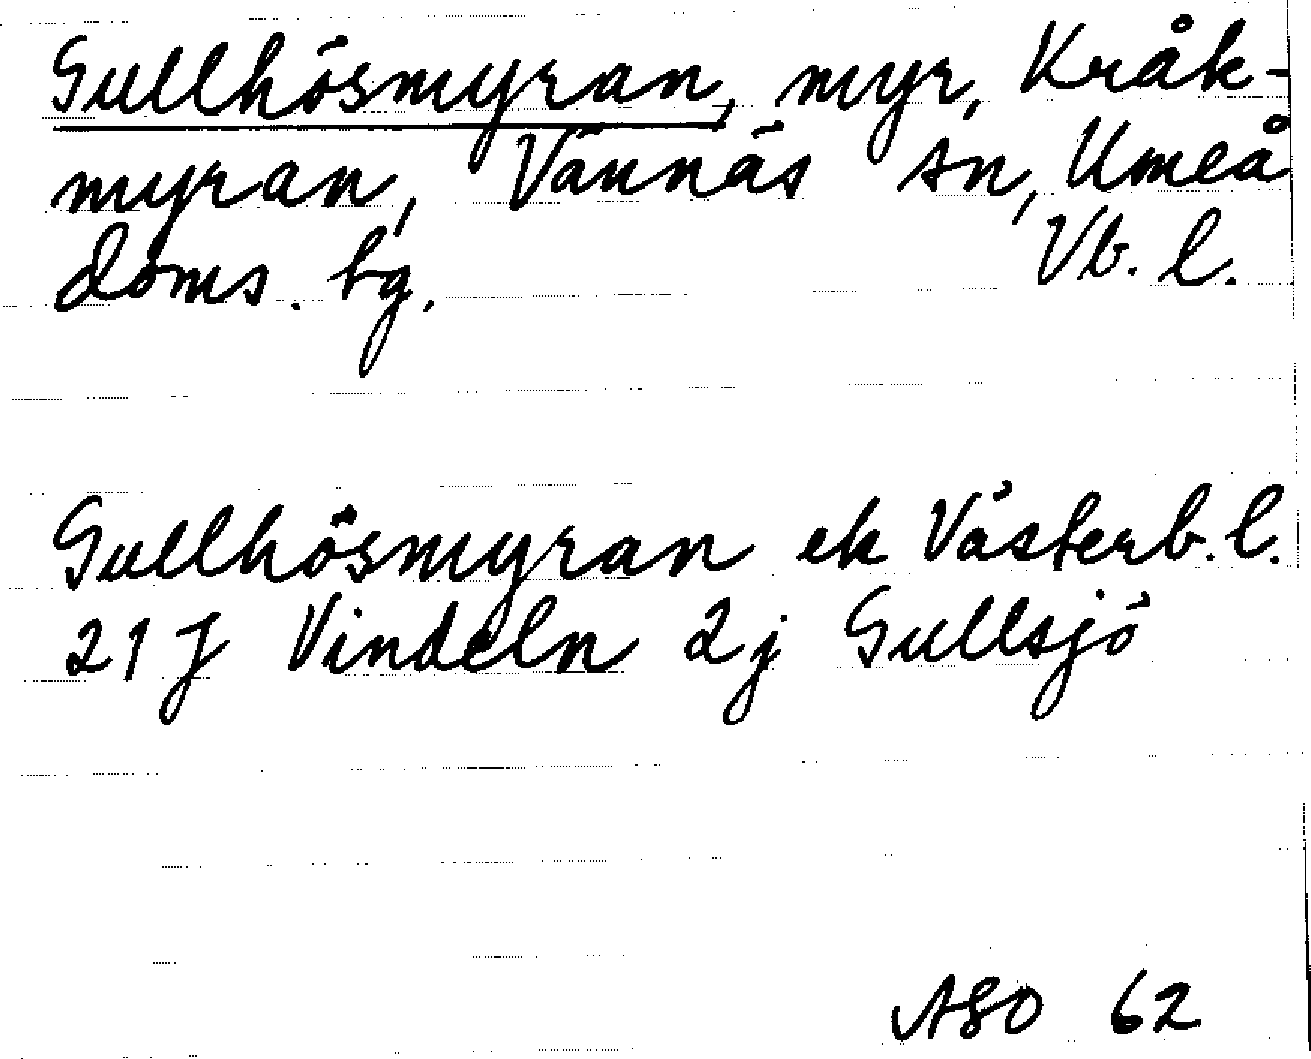 Gullhösmyran, myr, Kråk-
myran, Vännäs sn, Umeå
doms. hg. Vb. l.
Gullhösmyran ek Västerb. l.
21 J Vindeln 2j Gullsjö
ASO 62